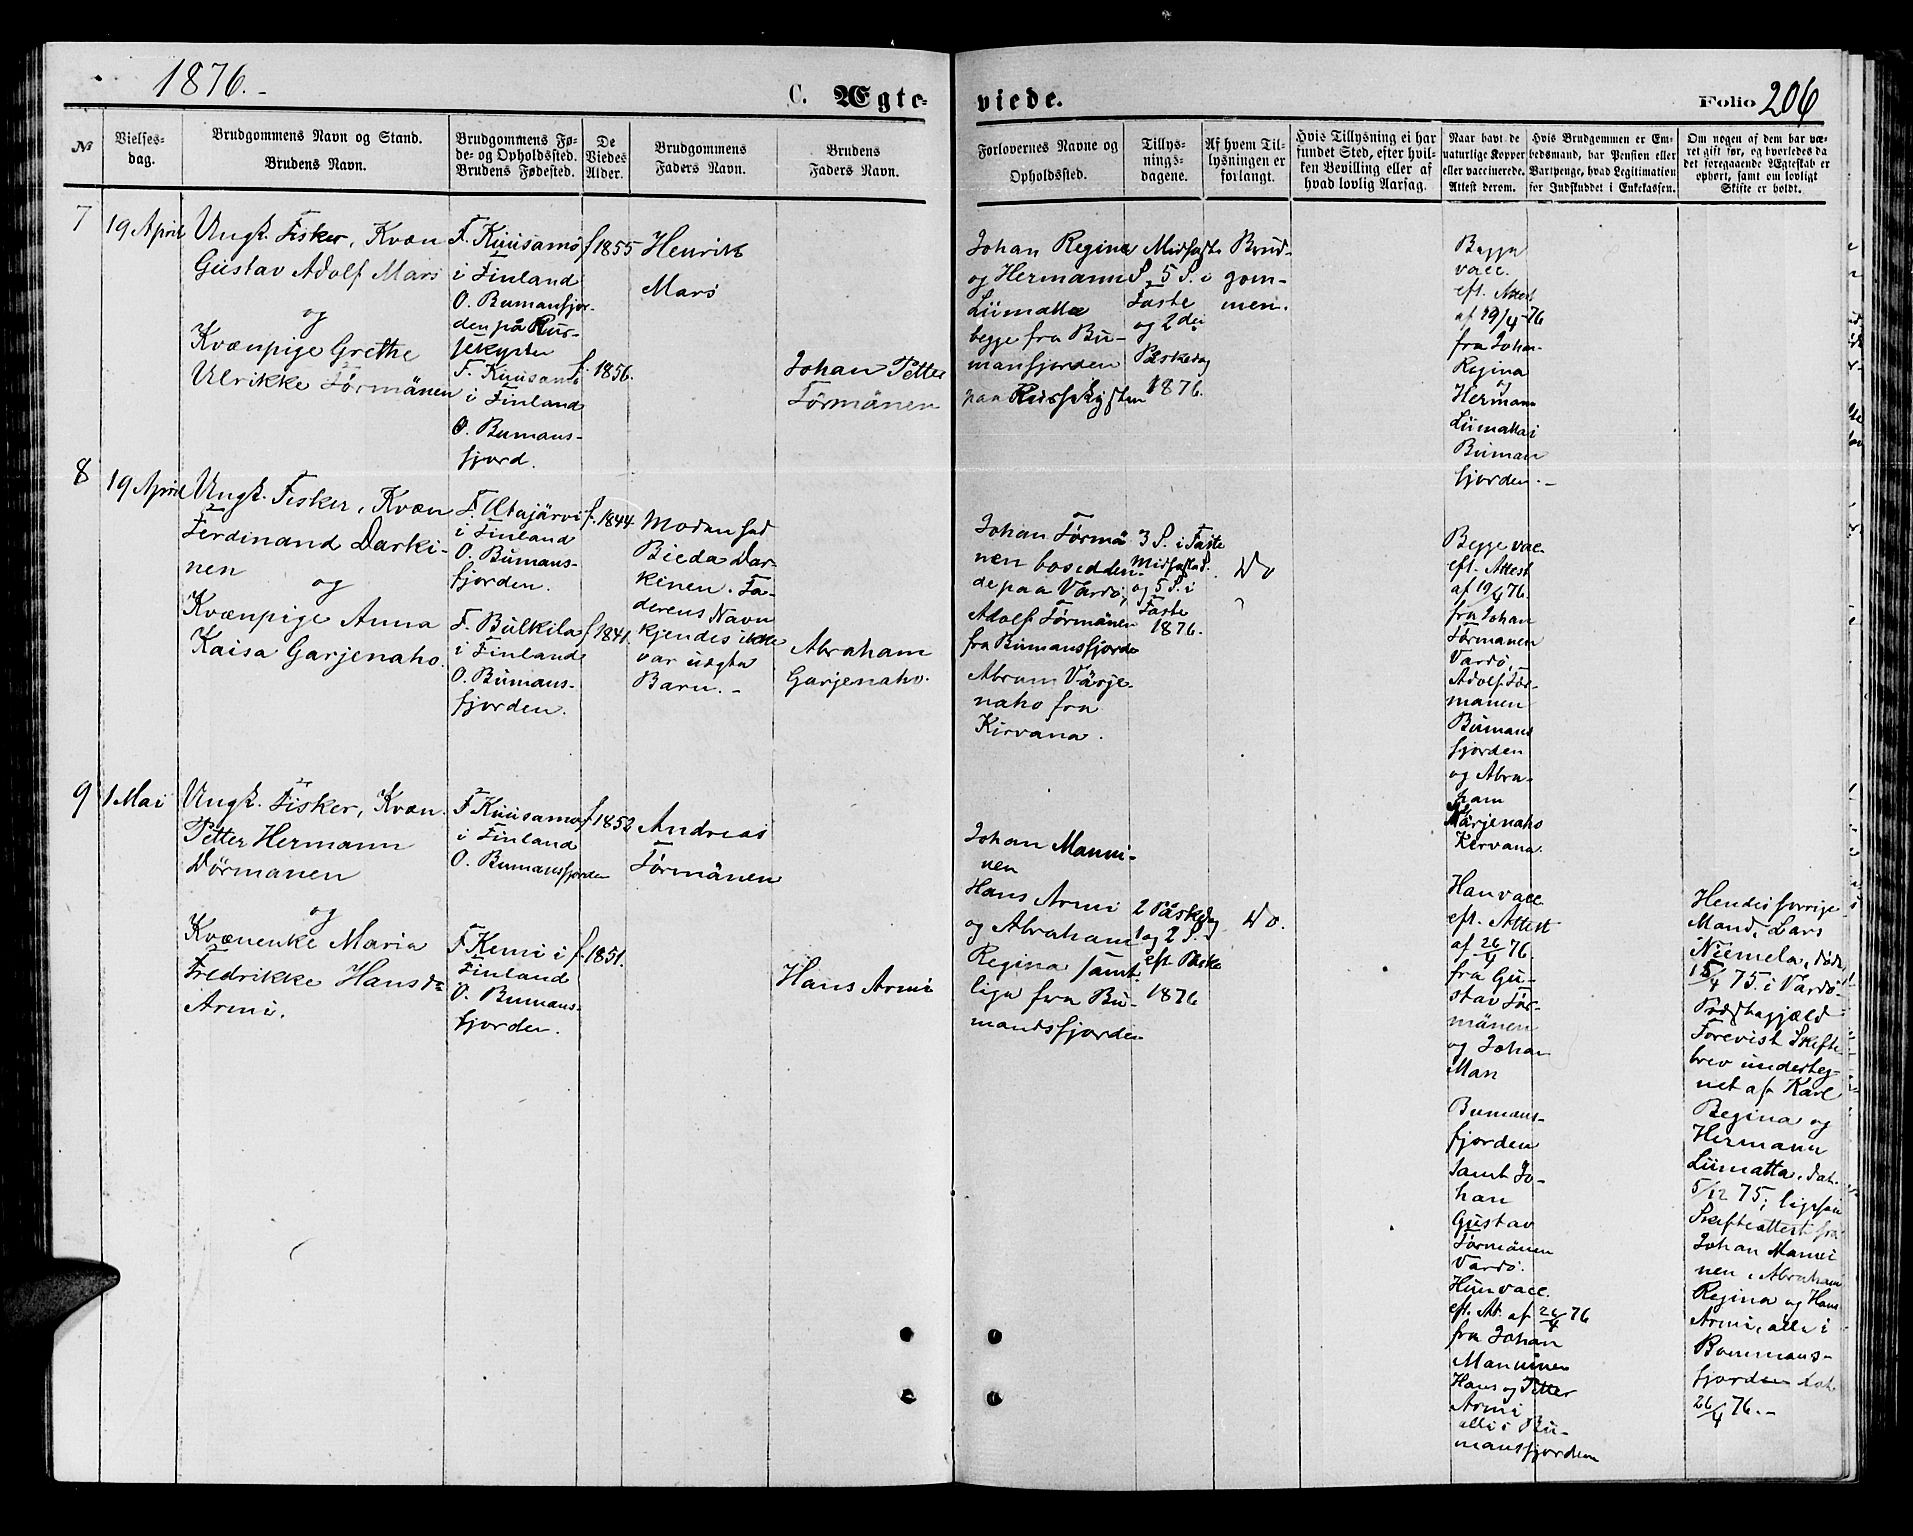 1876.-
C. Ægte-
viede.
Folio 206
№
Vielses-
dag.
Brudgommens Navn og Stand.
Brudens Navn.
Brudgommens Fø-
de- og Opholdssted.
Brudens Fødested.
De
Viedes
Alder.
Brudgommens
Faders Navn.
Brudens
Faders Navn.
Forlovernes Navne og
Opholdssted.
Tillys-
nings-
dagene.
Af hvem Til-
lysningen er
forlangt.
Hvis Tillysning ei har
fundet Sted, efter hvil-
ken Bevilling eller af
hvad lovlig Aarsag.
Naar havt de
naturlige Kopper
eller vaccinerede.
Attest derom.
Hvis Brudgommen er Em-
bedsmand, har Pension eller
Vartpenge, hvad Legitimation
for Indskuddet i Enkekassen.
Om nogen af dem har væ-
ret gift før, og hvorledes da
det foregaaende Ægteskab er
ophørt, samt om lovligt
Skifte er holdt.
7
19 April
Ungk. Fisker, Kvæn
Gustav Adolf Mars
og
Kvænpige Grethe
Ulrikke Törmänen
F. Kuusamo
i Finland
O. Bumansfjor-
den på Rus-
sekysten
F. Kuusamo
i Finland
O. Bumans-
fjord.
f. 1855
f. 1856.
Henrik
Mars
Johan Petter
Törmänen
Johan Regina
og Hermann
Liimatta
begge fra Bu-
mansfjorden
paa Russekysten
Midfaste
S, 5 S. i
Faste
og 2den
Påskedag
1876.
Brud-
gom-
men.
Begge
vacc.
eft. Attest
af 19/4-76
fra Johan
Regina
og
Hermann
Liimatta i
Buman
fjorden.-
8
19 April
Ungk. Fisker, Kvæn
Ferdinand Darki-
nen
og
Kvænpige Anna
Kaisa Garjenaho.
F. Utajärvi
i Finland
O. Bumans-
fjorden.
F. Bulkila
i Finland
O. Bumans-
fjorden.
f. 1844
f. 1841.
Moderen hed
Bieda Dar-
kinen. Fa-
derens Navn
kjendes ikke
var uægte
Barn.-
Abraham
Garjenaho.
Johan Törmä
nen bosidden-
de paa Vardö,
Adolf Törmänen
fra Bumansfjorde
Abram Värje-
naho fra
Kirvana.
3 S. i Faste
Midfaste S.
og 5 S. i
Faste
1876.
Do
Begge vac.
eft. Attest
af 19/4 76.
fra Johan
Törmanen
Vardö,
Adolf Tör-
mänen
Bumans
fjorden
og Abra-
ham
Värjenaho
Kirvana.
9
1 Mai
Ungk. Fisker, Kvæn
Petter Hermann
Dörmanen
og
Kvænenke Maria
Fredrikke Hansdr
Armi.
F Kuusamo
i Finland
O. Bumansfjorden
F Kemi i
Finland
O. Bumans-
fjorden.
f. 1852
f. 1851.
Andreas
Törmänen
Hans Armi
Johan Manni-
nen
Hans Armi
og Abraham
Regina samt-
lige fra Bu-
mandsfjorden
2 Påskedag
1 og 2 S.
eft. Påske
1876
Do.
Han vacc.
eft. Attest
af 26/4 76.
fra Gu-
stav Tör-
mänen
og Johan
Man
Bumans-
fjorden
samt Jo-
han
Gustav
Törmänen
Vardö.
Hun vacc.
eft. At. af 26/4 76
fra Johan
Manninen
Hans og Petter
Armi
alle i Bu-
mansfjorden
Hendes forrige
Mand, Lars
Niemela, døde
15/4 75. i Vardö
Præstegjæld
Forevist Skifte
brev underteg-
net af Karl
Regina og
Hermann
Liimatta, dat.
5/12 75; ligesaa
Skifteattest fra
Johan Manni
nen, Abraham
Regina og Hans
Armi, alle i
Bommans-
fjorden dat.
26/4 76.-